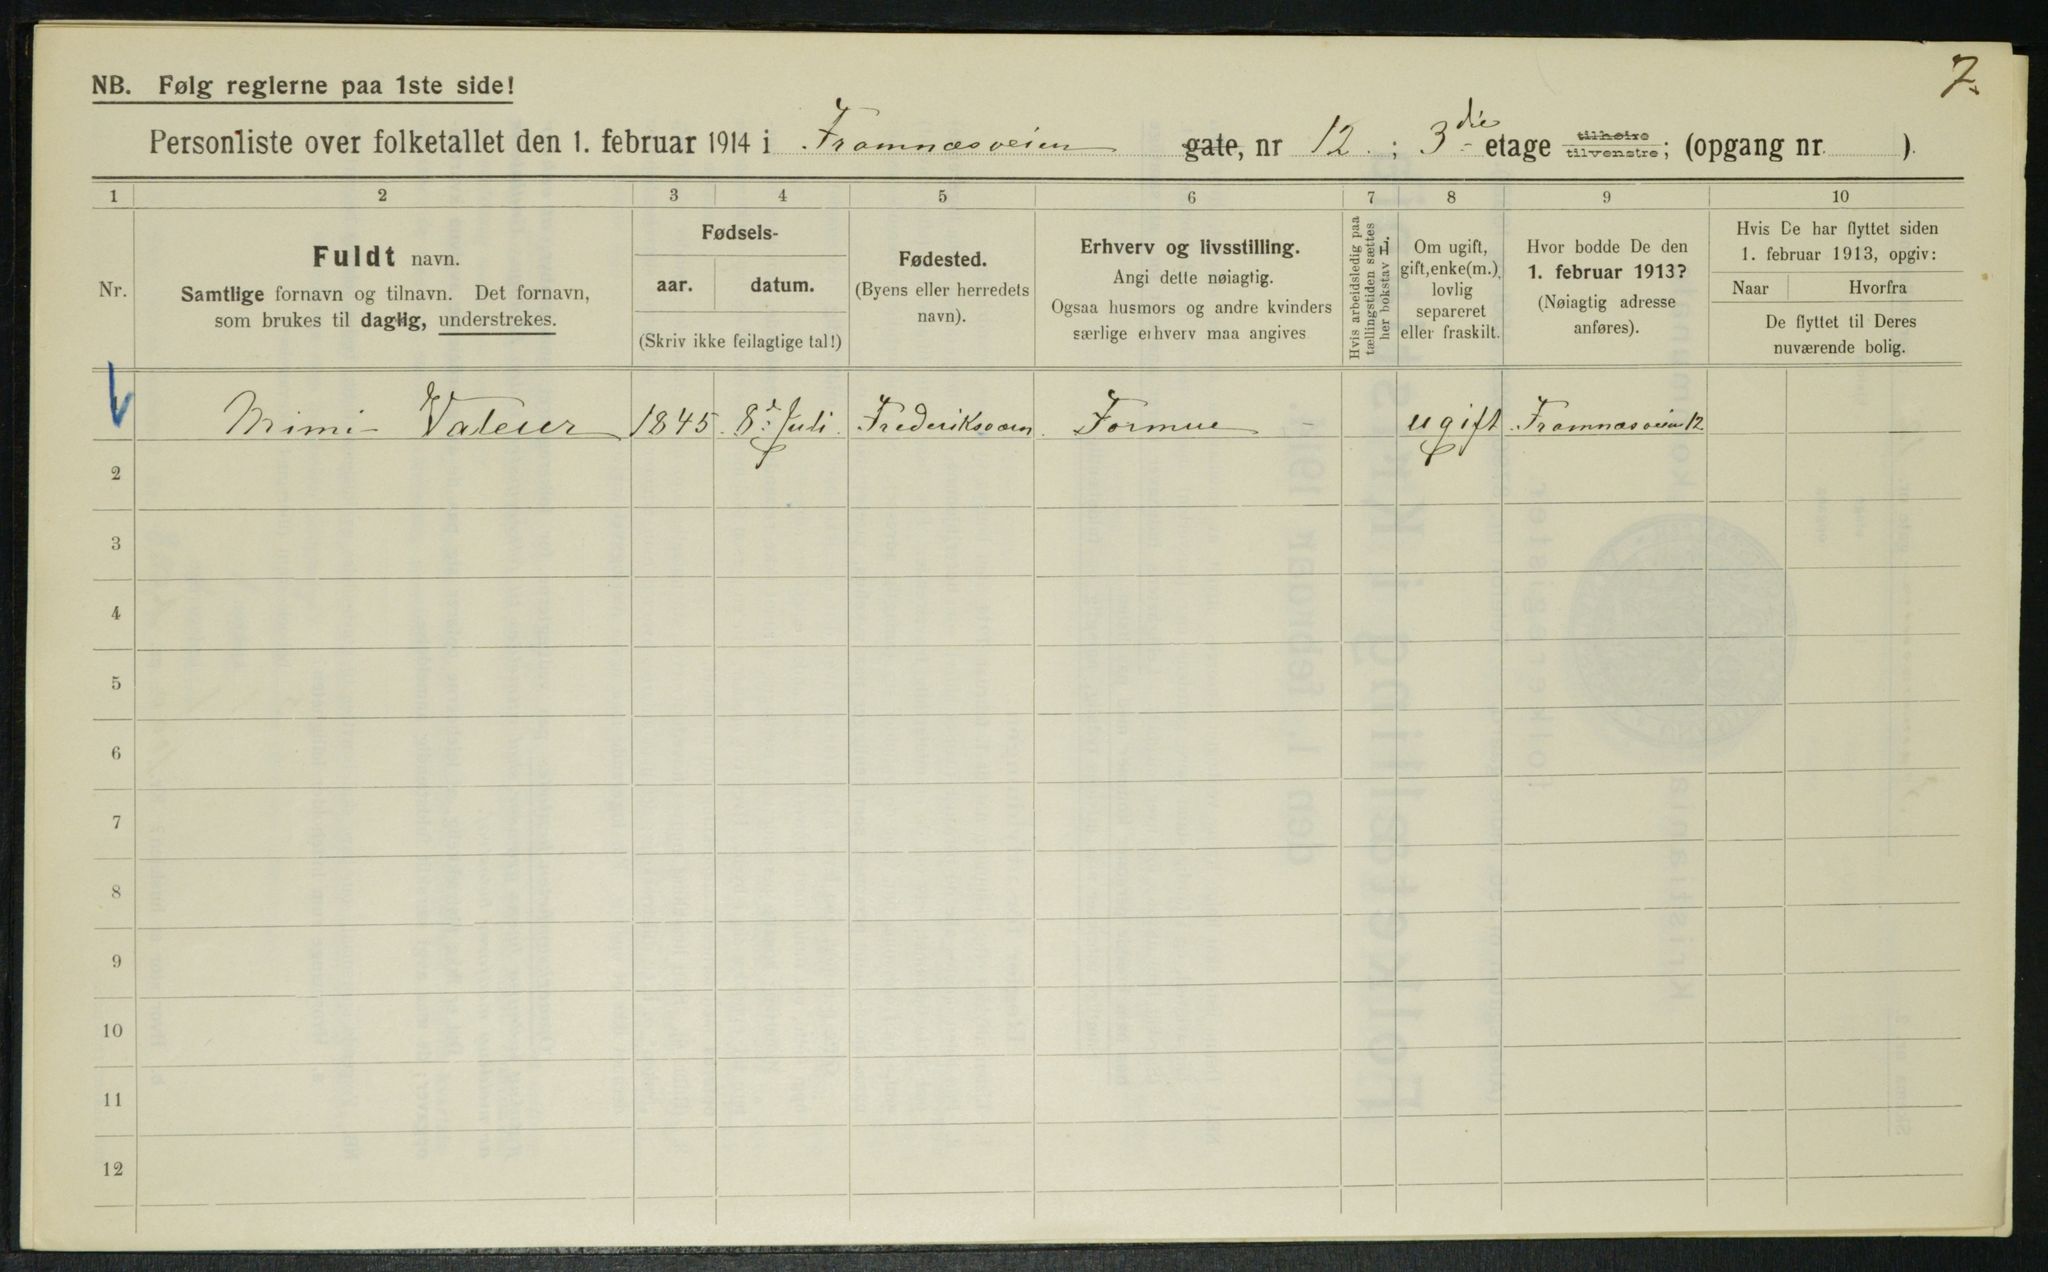 7.
NB. Følg reglerne paa 1ste side!
Personliste over folketallet den 1. februar 1914 i Framnæsveien gate, nr 12. ; 3die etage tilhøire tilvenstre; (opgang nr. ).
1 2 3 4 5 6 7 8 9 10
Nr.
Fuldt navn.
Samtlige fornavn og tilnavn. Det fornavn,
som brukes til daglig, understrekes.
Fødsels-
aar. datum.
(Skriv ikke feilagtige tal!)
Fødested.
(Byens eller herredets
navn).
Erhverv og livsstilling.
Angi dette nøiagtig.
Ogsaa husmors og andre kvinders
særlige erhverv maa angives
Hvis arbeidsledig paa
tællingstiden sættes
her bokstav L.
Om ugift,
gift, enke(m.),
lovlig
separeret
eller fraskilt.
Hvor bodde De den
1. februar 1913?
(Nøiagtig adresse
anføres).
Hvis De har flyttet siden
1. februar 1913, opgiv:
Naar Hvorfra
De flyttet til Deres
nuværende bolig.
Mimi Valeur 1845 8d Juli Frederiksværn Formue ugift Framnæsveien 12
2
3
4
5
6
7
8
9
10
11
12